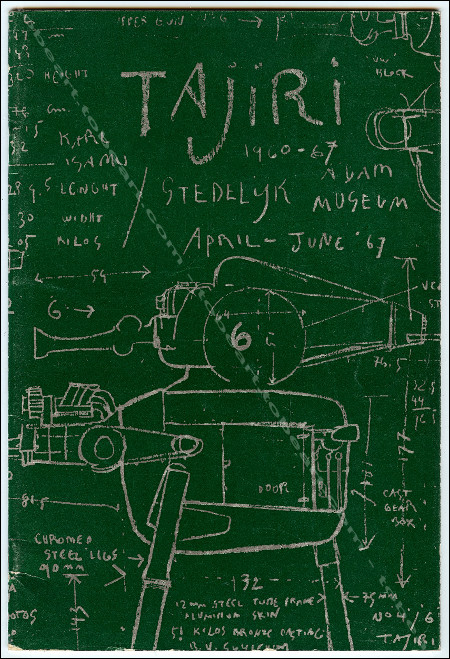 UPPER GUN
HEIGHT
BLOCK
TAJIRI
1960-67
KARL
ISAMU
STEDELIJK
ADAM
MUSEUM
LENGHT
WIDHT
KILOS
APRIL - JUNE '67
54
6
6
76.5
DOOR
177
CAST
GEAR
BOX
CHROMED
STEEL LEGS
90 mm
132
75 mm
12 mm STEEL TUBE FRAME
ALUMINUM SKIN
51 KILOS BRONZE CASTING
NO 4/6
TAJIRI